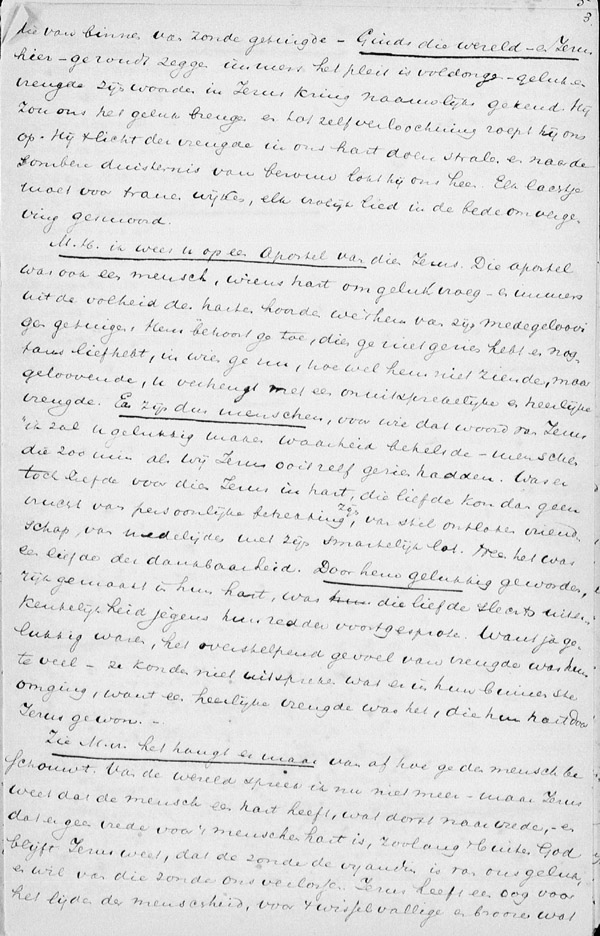 3
die van binnen van zonde getuigde - Ginds die wereld - en Jezus
hier - gerondt zegge immers het pleit is voldongen - geluk en
vreugde zijn woorden in Jezus kring nauwelijks gekend. Hij
zou ons het geluk brengen en tot zelfverloochening roept hij ons
op. Hij 't licht der vreugde in ons hart doen stralen en naar de
sombere duisternis van berouw lokt hij ons heen. Elk lachje
moet voor tranen wijken, elk vroolijk lied in de bede om verge
ving gesmoord.
M.H. ik wees u op een Apostel van dien Jezus. Die apostel
was ook een mensch, wiens hart om geluk vroeg - en immers
uit de volheid des harten hoorden we hem van zijn medegeloovi
gen getuigen, Hem behoort ge toe, dien ge niet gezien hebt en nog
tans liefhebt, in wien ge nu, hoewel hem niet ziende, maar
geloovende, u verheugt met een onuitsprekelijke en heerlijke
vreugde. Er zijn dus menschen, voor wie dat woord van Jezus
"ik zal u gelukkig maken waarheid behelsde - menschen
die zoo min als wij Jezus ooit zelf gezien hadden. Was er
toch liefde voor dien Jezus in hart, die liefde kon dan geen
vrucht van persoonlijke betrekking zijn, van stil ontloken vriend
schap, van medelijden met zijn smartelijk lot. Neen het was
een liefde der dankbaarheid. Door hem gelukkig geworden,
rijk gemaakt in hun hart, was die liefde slechts uit er
kentelijkheid jegens hun redder voortgesproten. Want ja ge
lukkig waren, het overstelpend gevoel van vreugde was hun
te veel - ze konden niet uitspreken wat er in hun binnenste
omging, want een heerlijke vreugde was het, die hun hart door
Jezus gewon. -
Zie M.H. het hangt er maar van af hoe ge den mensch be
schouwt. Van de wereld spreek ik nu niet meer - maar Jezus
weet dat de mensch een hart heeft, wat dorst naar vrede, - en
dat er geen vrede voor 't menschenhart is, zoolang 't buiten God
blijft Jezus weet, dat de zonde de vijandin is van ons geluk,
en wil van die zonde ons verlossen. Jezus heeft een oog voor
het lijden der menschheid, voor 't wisselvallige en broze wat